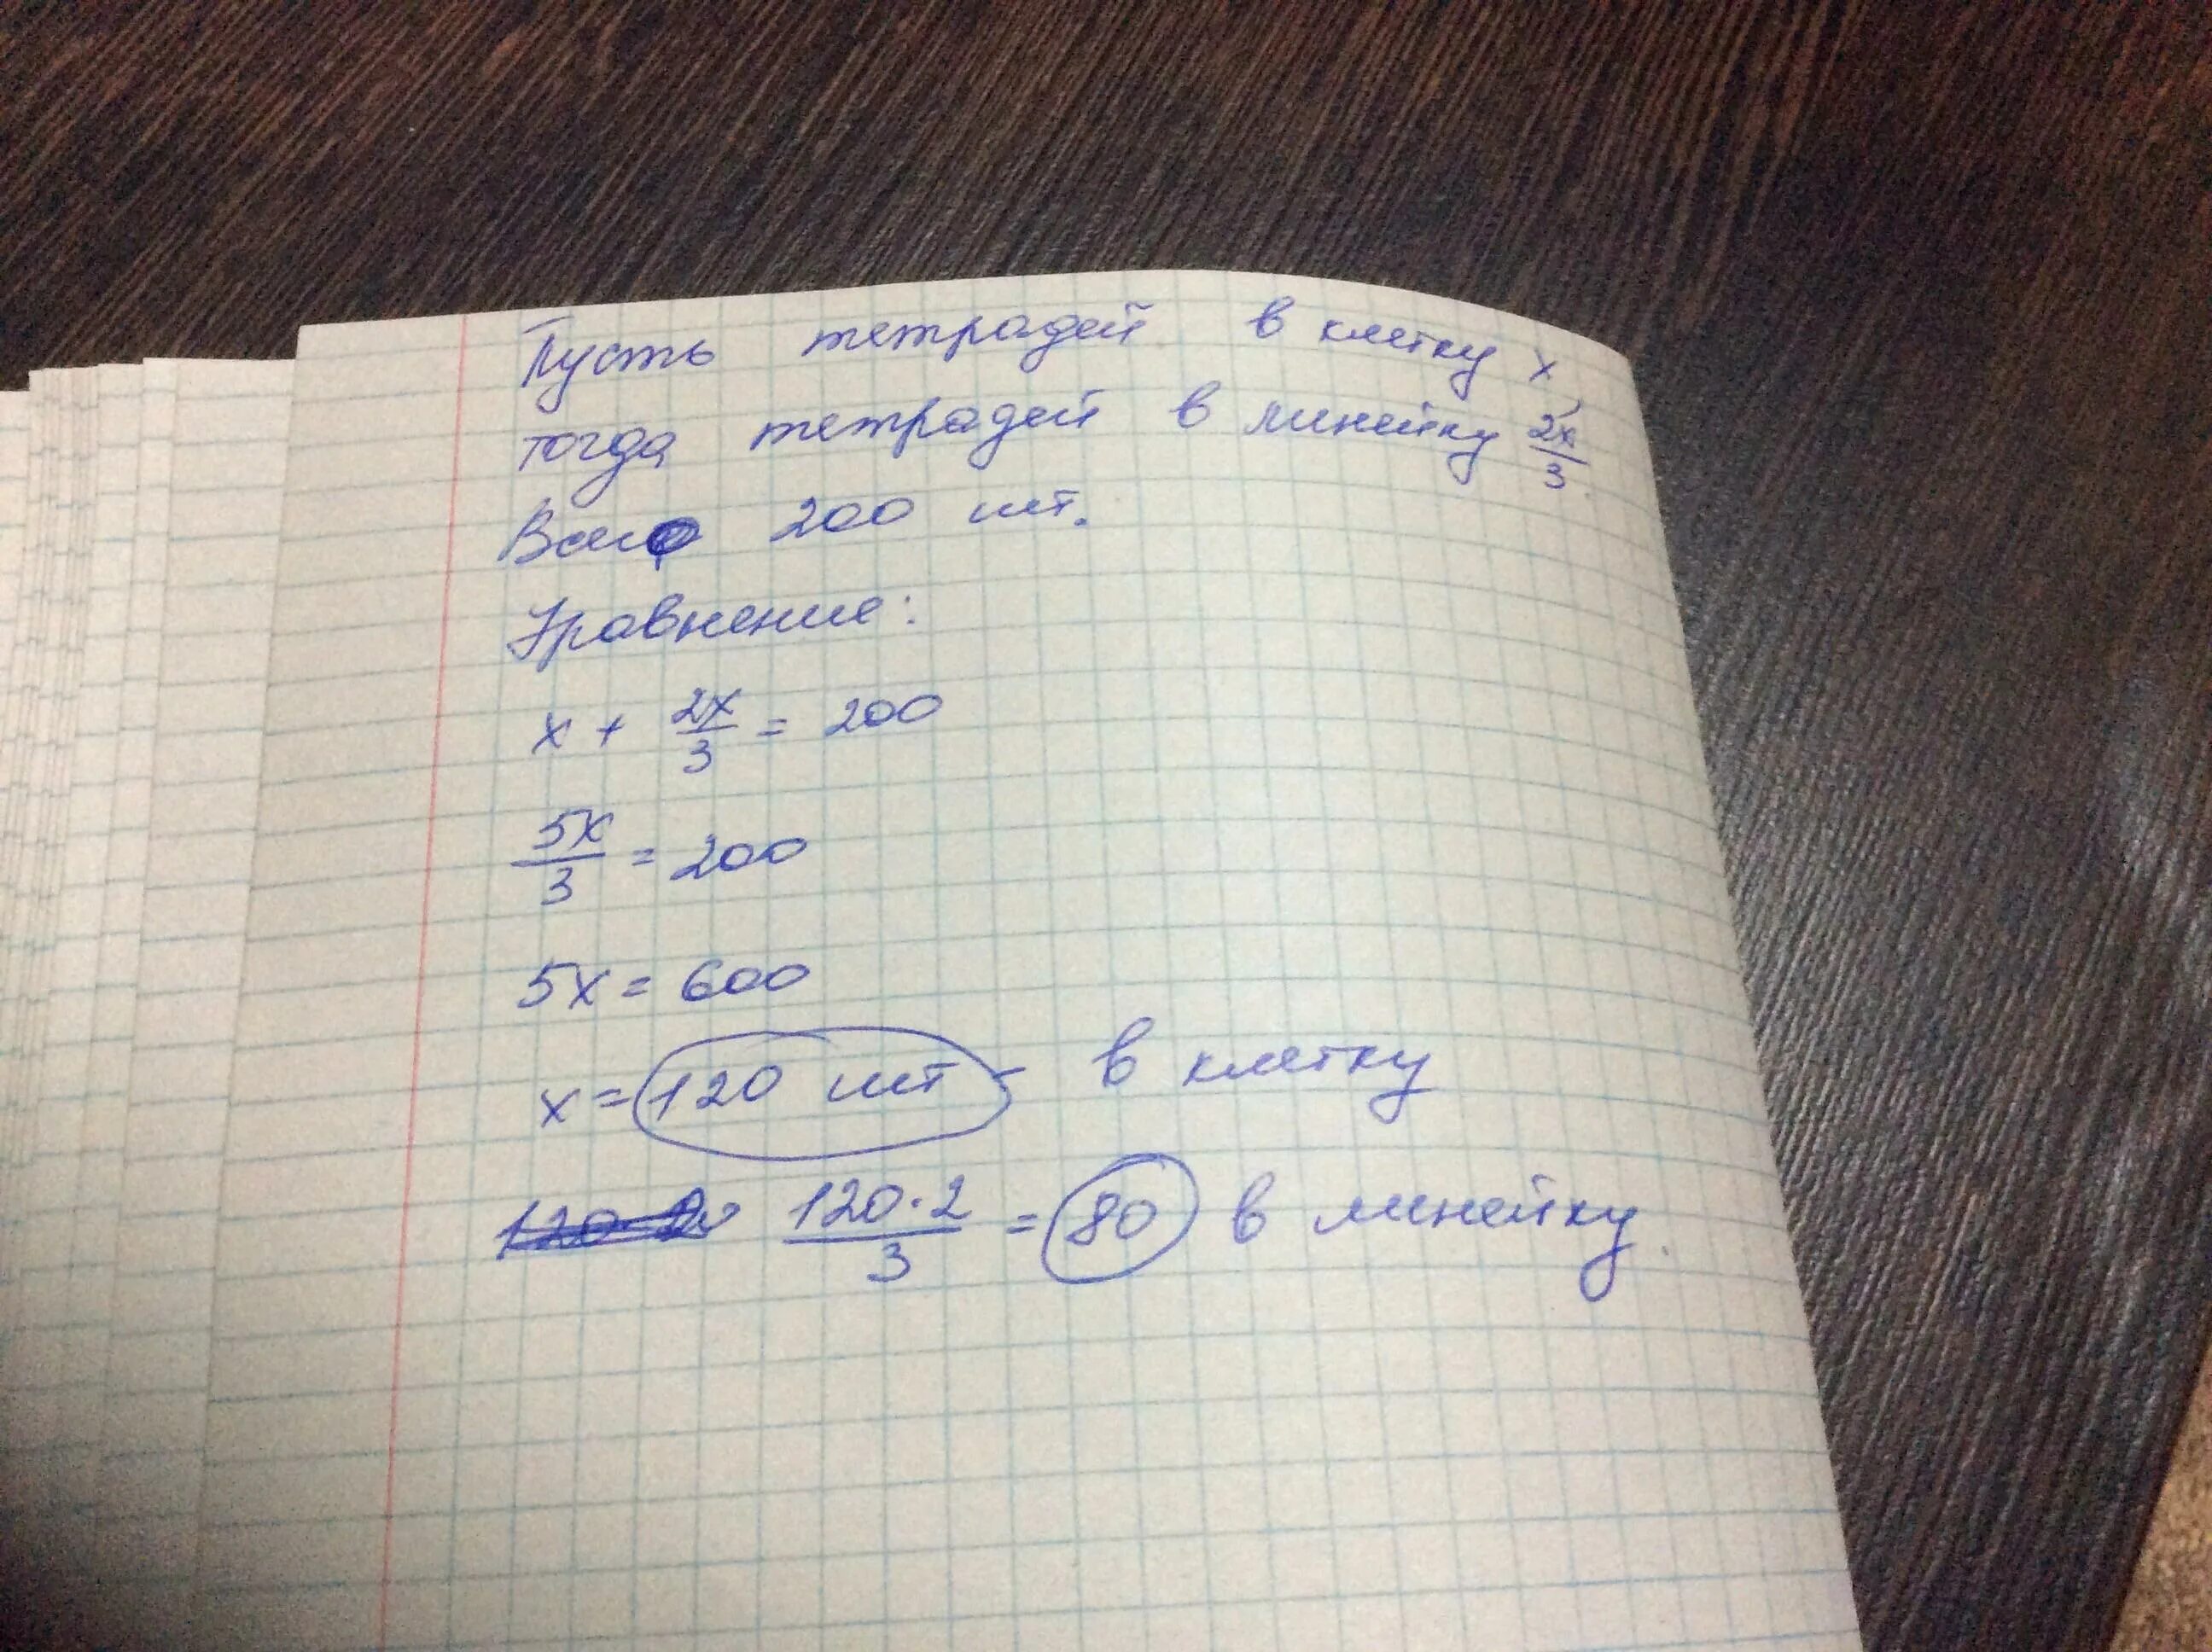 Пусть тетрадей в клетку x,
тогда тетрадей в линейку 2x/3.
Всего 200 шт.
Уравнение:
x + 2x/3 = 200
5x/3 = 200
5x = 600
x = 120 шт - в клетку
120·2/3 = 80 в линейку.